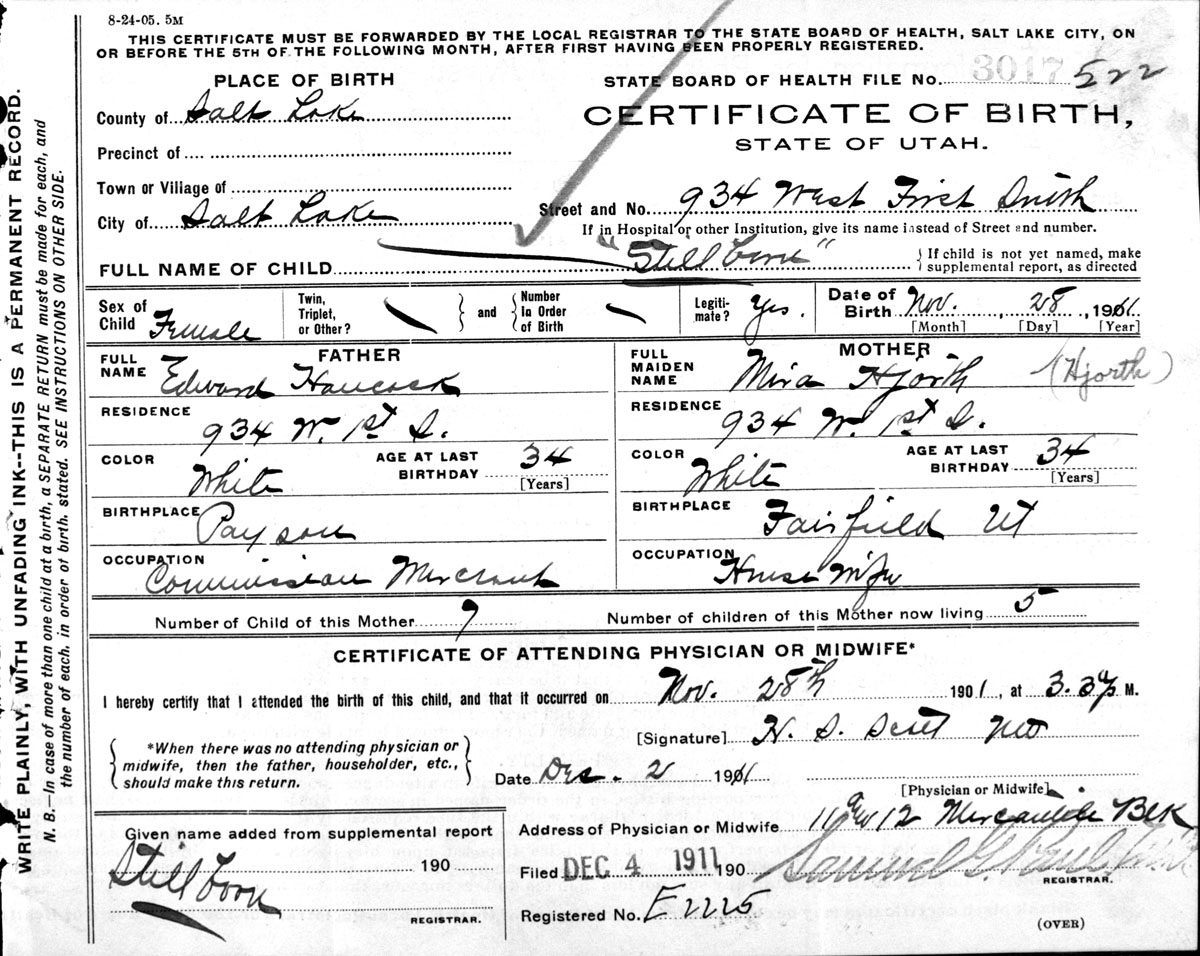 8-24-05. 5M
THIS CERTIFICATE MUST BE FORWARDED BY THE LOCAL REGISTRAR TO THE STATE BOARD OF HEALTH, SALT LAKE CITY, ON
OR BEFORE THE 5TH OF THE FOLLOWING MONTH, AFTER FIRST HAVING BEEN PROPERLY REGISTERED.
WRITE PLAINLY, WITH UNFADING INK--THIS IS A PERMANENT RECORD.
N. B.—In case of more than one child at a birth, a SEPARATE RETURN must be made for each, and
the number of each, in order of birth, stated. SEE INSTRUCTIONS ON OTHER SIDE.
PLACE OF BIRTH
STATE BOARD OF HEALTH FILE No. 3017 522
County of Salt Lake
CERTIFICATE OF BIRTH,
STATE OF UTAH.
Precinct of
Town or Village of
City of Salt Lake
Street and No. 934 West First South
If in Hospital or other Institution, give its name instead of Street and number.
FULL NAME OF CHILD "Stillborn"
If child is not yet named, make
supplemental report, as directed
Sex of Child Female
Twin, Triplet, or Other?
and
Number In Order of Birth
Legiti-mate? Yes.
Date of Birth Nov. 28, 1911
[Month] [Day] [Year]
FATHER
FULL NAME Edward Hancock
RESIDENCE 934 W. 1st S.
COLOR White
AGE AT LAST BIRTHDAY 34
[Years]
BIRTHPLACE Payson
OCCUPATION Commission Merchant
MOTHER
FULL MAIDEN NAME Mina Hjorth (Hjorth)
RESIDENCE 934 W. 1st S.
COLOR White
AGE AT LAST BIRTHDAY 34
[Years]
BIRTHPLACE Fairfield Ut
OCCUPATION House Wife
Number of Child of this Mother 7
Number of children of this Mother now living 5
CERTIFICATE OF ATTENDING PHYSICIAN OR MIDWIFE*
I hereby certify that I attended the birth of this child, and that it occurred on Nov. 28th 1901, at M.
*When there was no attending physician or
midwife, then the father, householder, etc.,
should make this return.
[Signature] H. S. Scott MD
Date Dec. 2 1911
[Physician or Midwife]
Given name added from supplemental report
Address of Physician or Midwife 12 Mercantile Blk
Stillborn 190
REGISTRAR.
Filed DEC 4 1911 190 Samuel G.
REGISTRAR.
Registered No. E2225
(OVER)